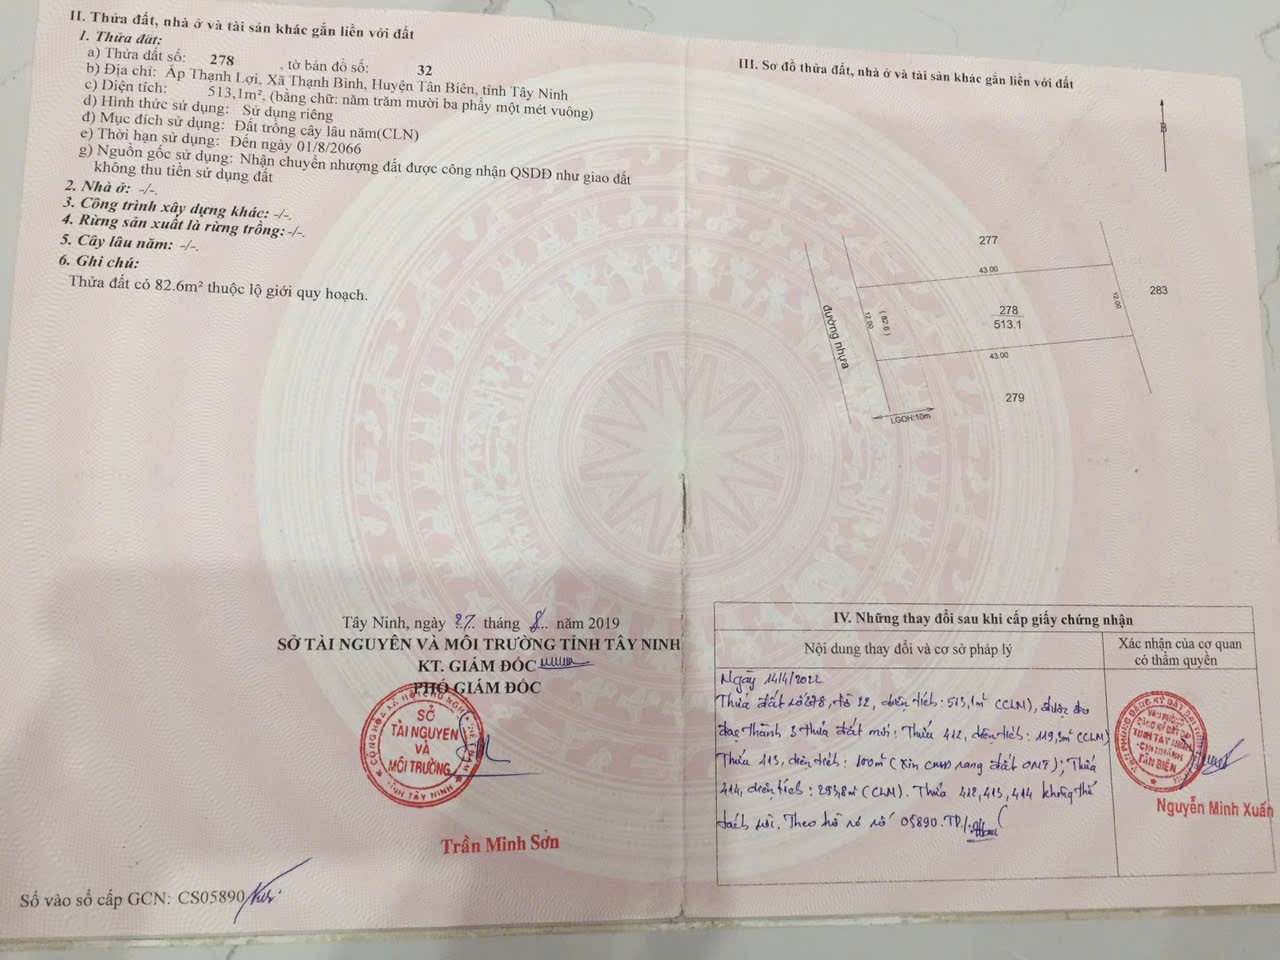 II. Thửa đất, nhà ở và tài sản khác gắn liền với đất
1. Thửa đất:
a) Thửa đất số: 278 , tờ bản đồ số: 32
b) Địa chỉ: Ấp Thạnh Lợi, Xã Thạnh Bình, Huyện Tân Biên, tỉnh Tây Ninh
c) Diện tích: 513,1m², (bằng chữ: năm trăm mười ba phẩy một mét vuông)
d) Hình thức sử dụng: Sử dụng riêng
đ) Mục đích sử dụng: Đất trồng cây lâu năm(CLN)
e) Thời hạn sử dụng: Đến ngày 01/8/2066
g) Nguồn gốc sử dụng: Nhận chuyển nhượng đất được công nhận QSDĐ như giao đất
không thu tiền sử dụng đất
2. Nhà ở: -/-.
3. Công trình xây dựng khác: -/-.
4. Rừng sản xuất là rừng trồng:-/-.
5. Cây lâu năm: -/-.
6. Ghi chú:
Thửa đất có 82.6m² thuộc lộ giới quy hoạch.
Tây Ninh, ngày 27 tháng 8 năm 2019
SỞ TÀI NGUYÊN VÀ MÔI TRƯỜNG TỈNH TÂY NINH
KT. GIÁM ĐỐC
PHÓ GIÁM ĐỐC
SỞ
TÀI NGUYÊN
VÀ
MÔI TRƯỜNG
TỈNH TÂY NINH
Trần Minh Sơn
Số vào sổ cấp GCN: CS05890
III. Sơ đồ thửa đất, nhà ở và tài sản khác gắn liền với đất
B
277
43.00
283
12.00
278
513.1
(82.6)
12.00
đường nhựa
43.00
279
LGQH:10m
IV. Những thay đổi sau khi cấp giấy chứng nhận
Nội dung thay đổi và cơ sở pháp lý
Xác nhận của cơ quan
có thẩm quyền
Ngày 14/4/2022
Thửa đất số 278, tờ 32, diện tích: 513,1m² (CLN), được đo
đạc thành 3 thửa đất mới: Thửa 412, diện tích: 119,3m² (CLN)
Thửa 413, diện tích: 100m² (Xin CMĐ sang đất ONT); Thửa
414, diện tích: 293,8m² (CLN). Thửa 412, 413, 414 không thể
tách rời. Theo hồ sơ số 05890.TP/.
VĂN PHÒNG
ĐĂNG KÝ ĐẤT ĐAI
TỈNH TÂY NINH
-CHI NHÁNH
TÂN BIÊN
Nguyễn Minh Xuân